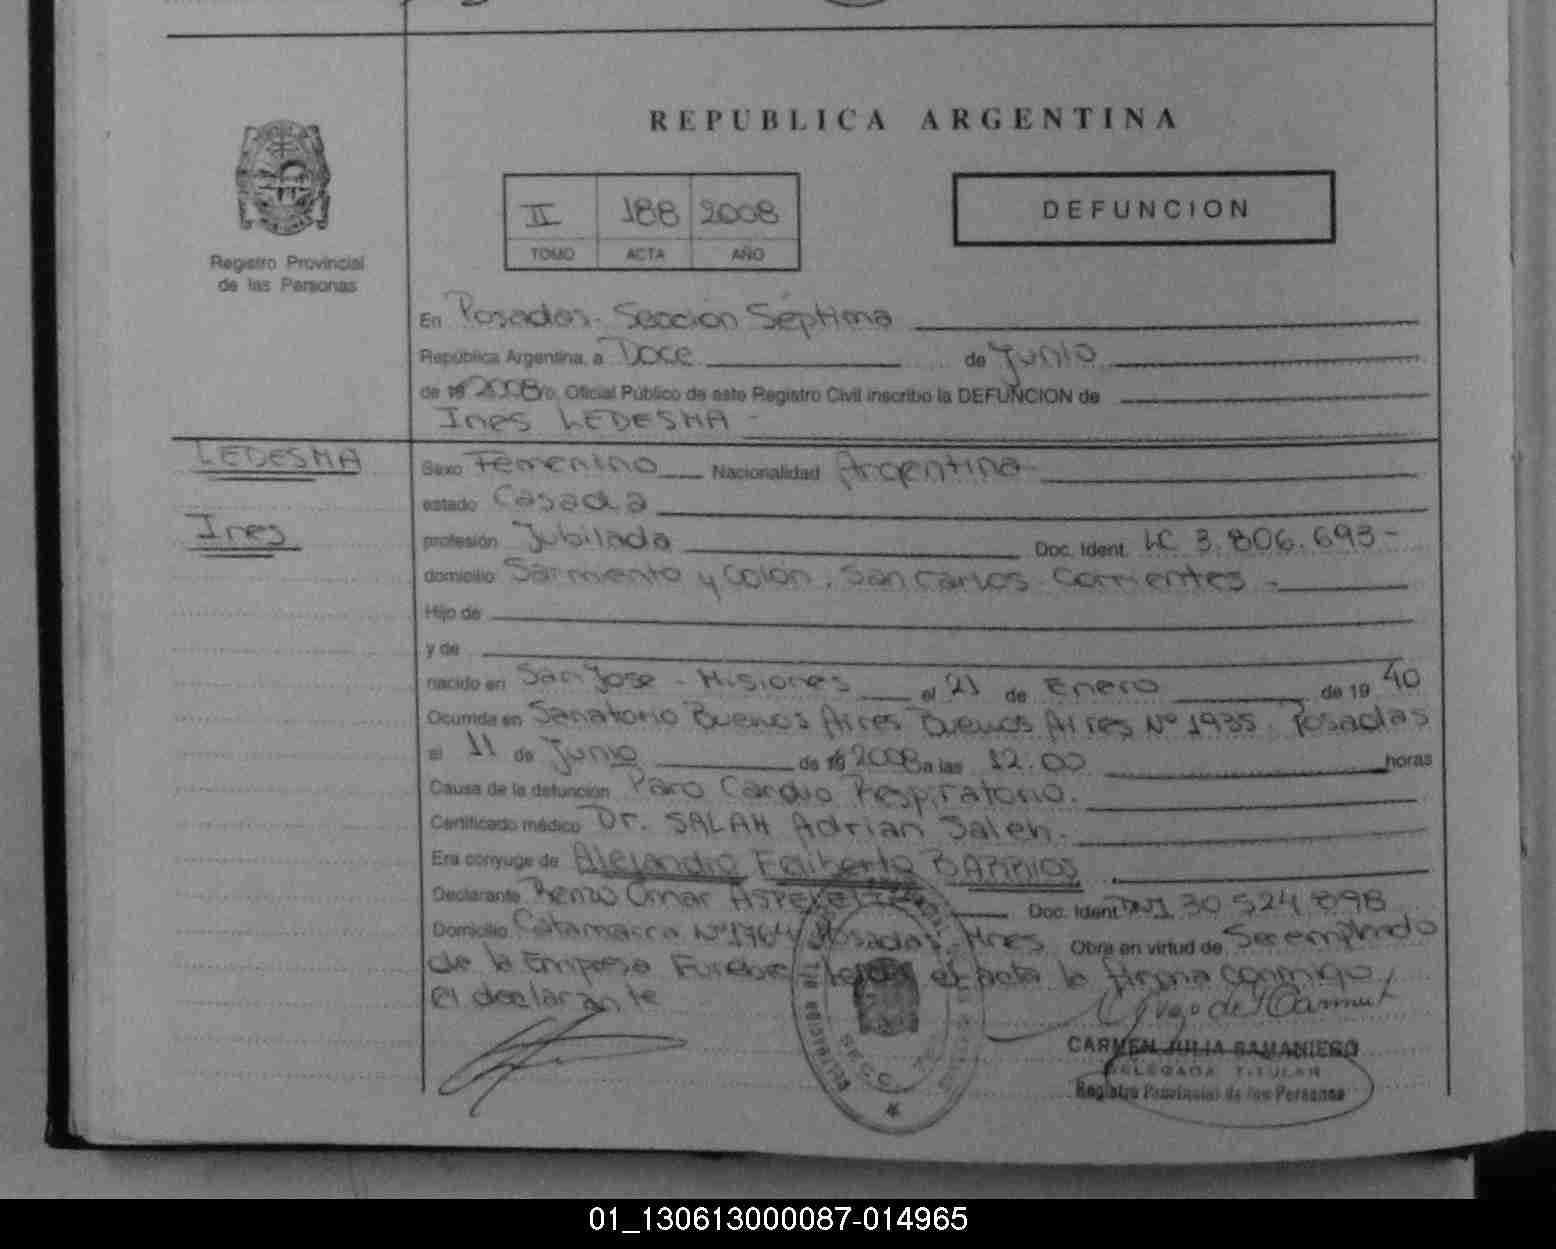 REPUBLICA ARGENTINA
Registro Provincial
de las Personas
II 188 2008
TOMO ACTA AÑO
DEFUNCION
En Posadas. Seccion Séptima
República Argentina, a Doce de Junio
de 19 2008 yo, Oficial Público de este Registro Civil inscribo la DEFUNCION de
Ines LEDESMA -
LEDESMA
Ines
Sexo Femenino Nacionalidad Argentina-
estado Casada
profesión Jubilada Doc. Ident. LC 3.806.693-
domicilio Sarmiento y Colon, San Carlos Corrientes -
Hijo de
y de
nacido en San Jose - Misiones el 21 de Enero de 19 40
Ocurrida en Sanatorio Buenos Aires Buenos Aires Nº 1935 Posadas
el 11 de Junio de 19 2008 a las 12.00 horas
Causa de la defunción Paro Cardio Respiratorio.
Certificado médico Dr. SALAH Adrian Saleh.
Era conyuge de Alejandro BARRIOS
Declarante Renzo Omar Doc. Ident DNI 30 524 898
Domicilio Catamarca Nº1964 Posadas, Mnes. Obra en virtud de Ser empleado
de la Empresa Funebre el acta la firma conmigo,
el declarante
SECC.
CARMEN JULIA SAMANIEGO
DELEGADA TITULAR
Registro Provincial de las Personas
01_130613000087-014965